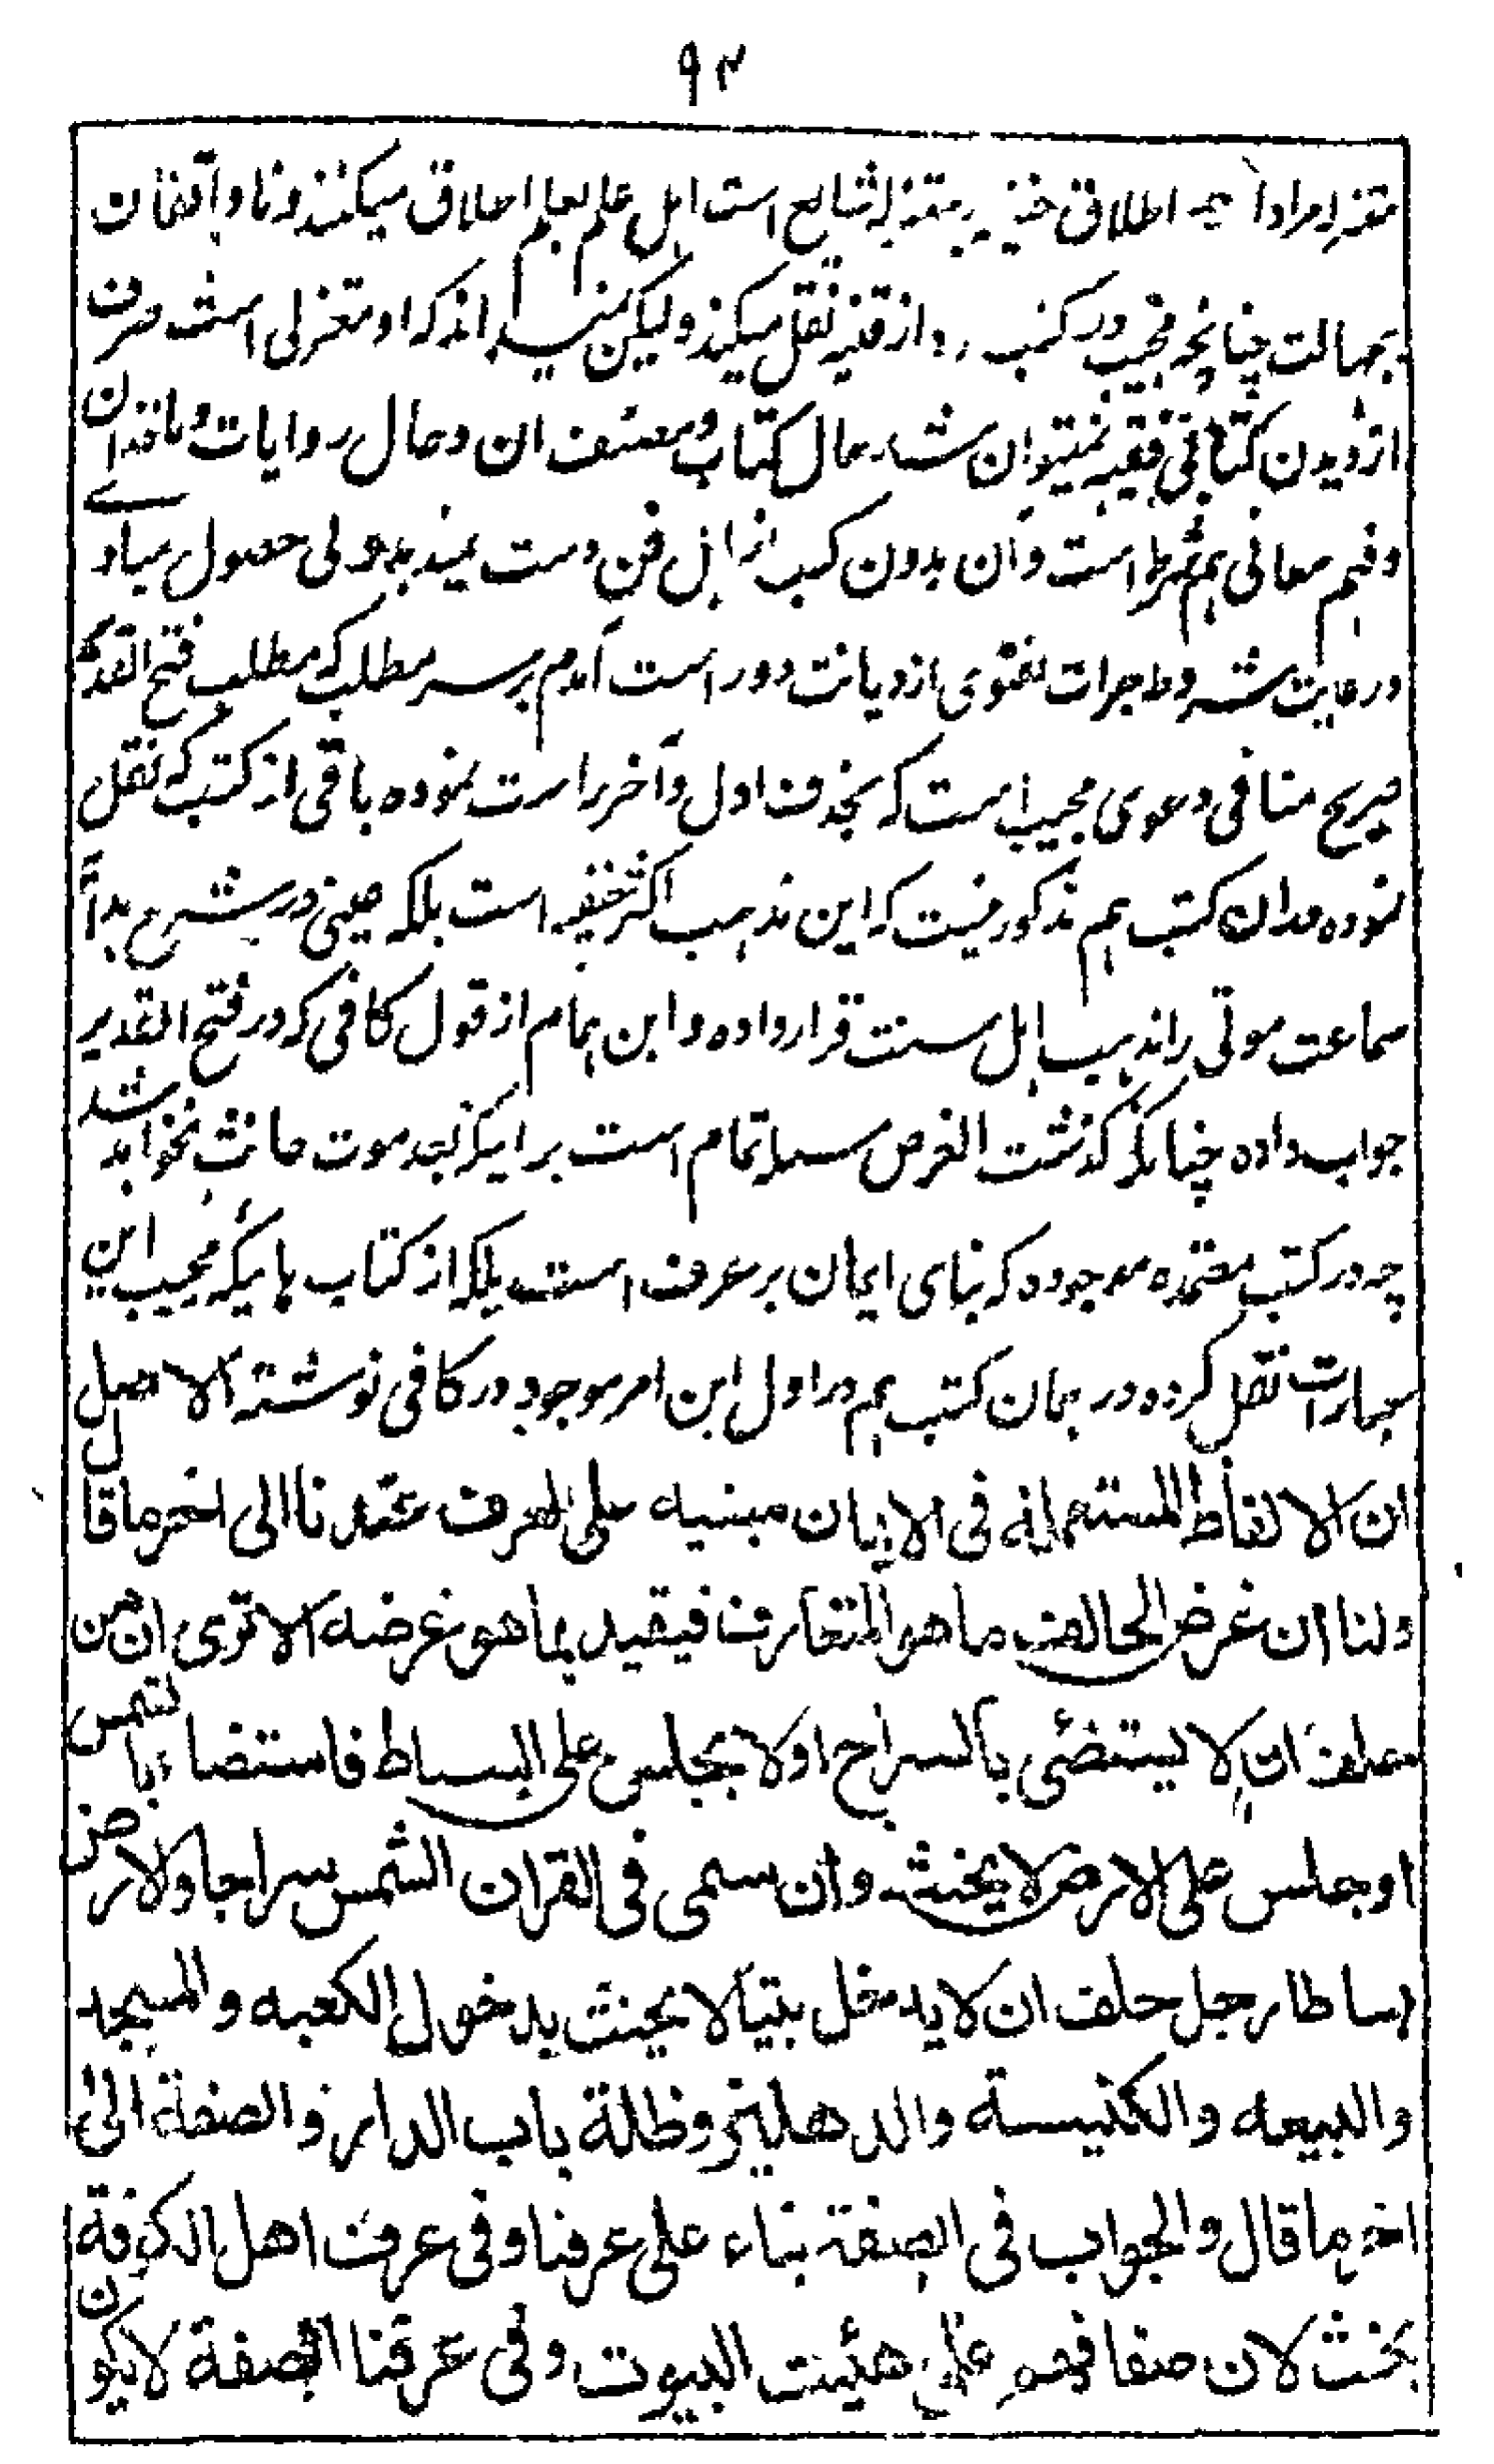 ۹۴
معتزله مراداً چه اطلاق حنفیه بر معتزله شایع است اهل علم بعلم اطلاق میکنند و ناواقفان
بجهالت چنانچه مجیب در کتب از قنیه نقل میکند ولیکن نمیداند که او معتزلی است صرف
از دیدن کتابی فقیه نمیتوان شد حال کتاب و مصنف ان و حال روایات و ناقدان
وفهم معانی هم شرط است وآن بدون کسب از اهل فن دست نمیدهد ولی حصول مبادے
ورعایت شروط جرات بفتوی از دیانت دور است آمدم بر سر مطلب که مطلب فتح القدیر
صریح منافی دعوی مجیب است که بحذف اول وآخر راست نموده باقی از کتب که نقل
نموده دران کتب هم مذکور نیست که این مذهب اکثر حنفیه است بلکه عینی در شرح هدایه
سماعت موتی را مذهب اهل سنت قرار داده و ابن همام از قول کافی که در فتح القدیر
جواب داده چنانکه گذشت الغرض مسئله تمام است برایکه بعد موت حانث نخواهد شد
چه در کتب معتمده موجوده که بنای ایمان بر عرف است بلکه از کتاب هائیکه مجیب این
عبارات نقل کرده در همان کتب هم در اول این امر موجود در کافی نوشته الاصل
ان الالفاظ المستعملة فی الایمان مبنیه علی العرف عندنا الی اخر ما قال
ولنا ان غرض الحالف ما هو المتعارف فیقید بما هو غرضه الا تری ان من
حلف ان لا یستضئی بالسراج او لا یجلس علی البساط فاستضاء بالشمس
او جلس علی الارض لا یحنث وان سمی فی القران الشمس سراجا والارض
بساطا رجل حلف ان لا یدخل بیتا لا یحنث بدخول الکعبه والمسجد
والبیعه والکنیسة والدهلیز وظلة باب الدار والصفة الی
اخر ما قال والجواب فی الصفة بناء علی عرفنا وفی عرف اهل الکوفة
یحنث لان صفافهم علی هیئت البیوت وفی عرفنا الصفة لا یکون